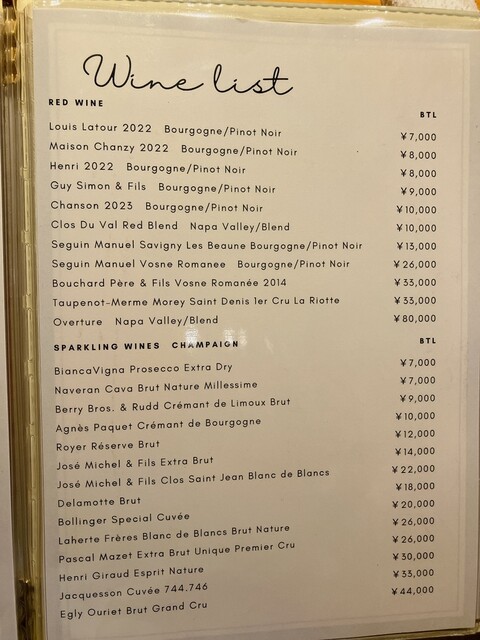 Wine list
RED WINE
BTL
Louis Latour 2022 Bourgogne/Pinot Noir ¥7,000
Maison Chanzy 2022 Bourgogne/Pinot Noir ¥8,000
Henri 2022 Bourgogne/Pinot Noir ¥8,000
Guy Simon & Fils Bourgogne/Pinot Noir ¥9,000
Chanson 2023 Bourgogne/Pinot Noir ¥10,000
Clos Du Val Red Blend Napa Valley/Blend ¥10,000
Seguin Manuel Savigny Les Beaune Bourgogne/Pinot Noir ¥13,000
Seguin Manuel Vosne Romanee Bourgogne/Pinot Noir ¥26,000
Bouchard Père & Fils Vosne Romanée 2014 ¥33,000
Taupenot-Merme Morey Saint Denis 1er Cru La Riotte ¥33,000
Overture Napa Valley/Blend ¥80,000
SPARKLING WINES CHAMPAIGN BTL
BiancaVigna Prosecco Extra Dry ¥7,000
Naveran Cava Brut Nature Millessime ¥7,000
Berry Bros. & Rudd Crémant de Limoux Brut ¥9,000
Agnès Paquet Crémant de Bourgogne ¥10,000
Royer Réserve Brut ¥12,000
José Michel & Fils Extra Brut ¥14,000
José Michel & Fils Clos Saint Jean Blanc de Blancs ¥22,000
Delamotte Brut ¥18,000
Bollinger Special Cuvée ¥20,000
Laherte Frères Blanc de Blancs Brut Nature ¥26,000
Pascal Mazet Extra Brut Unique Premier Cru ¥26,000
Henri Giraud Esprit Nature ¥30,000
Jacquesson Cuvée 744.746 ¥33,000
Egly Ouriet Brut Grand Cru ¥44,000